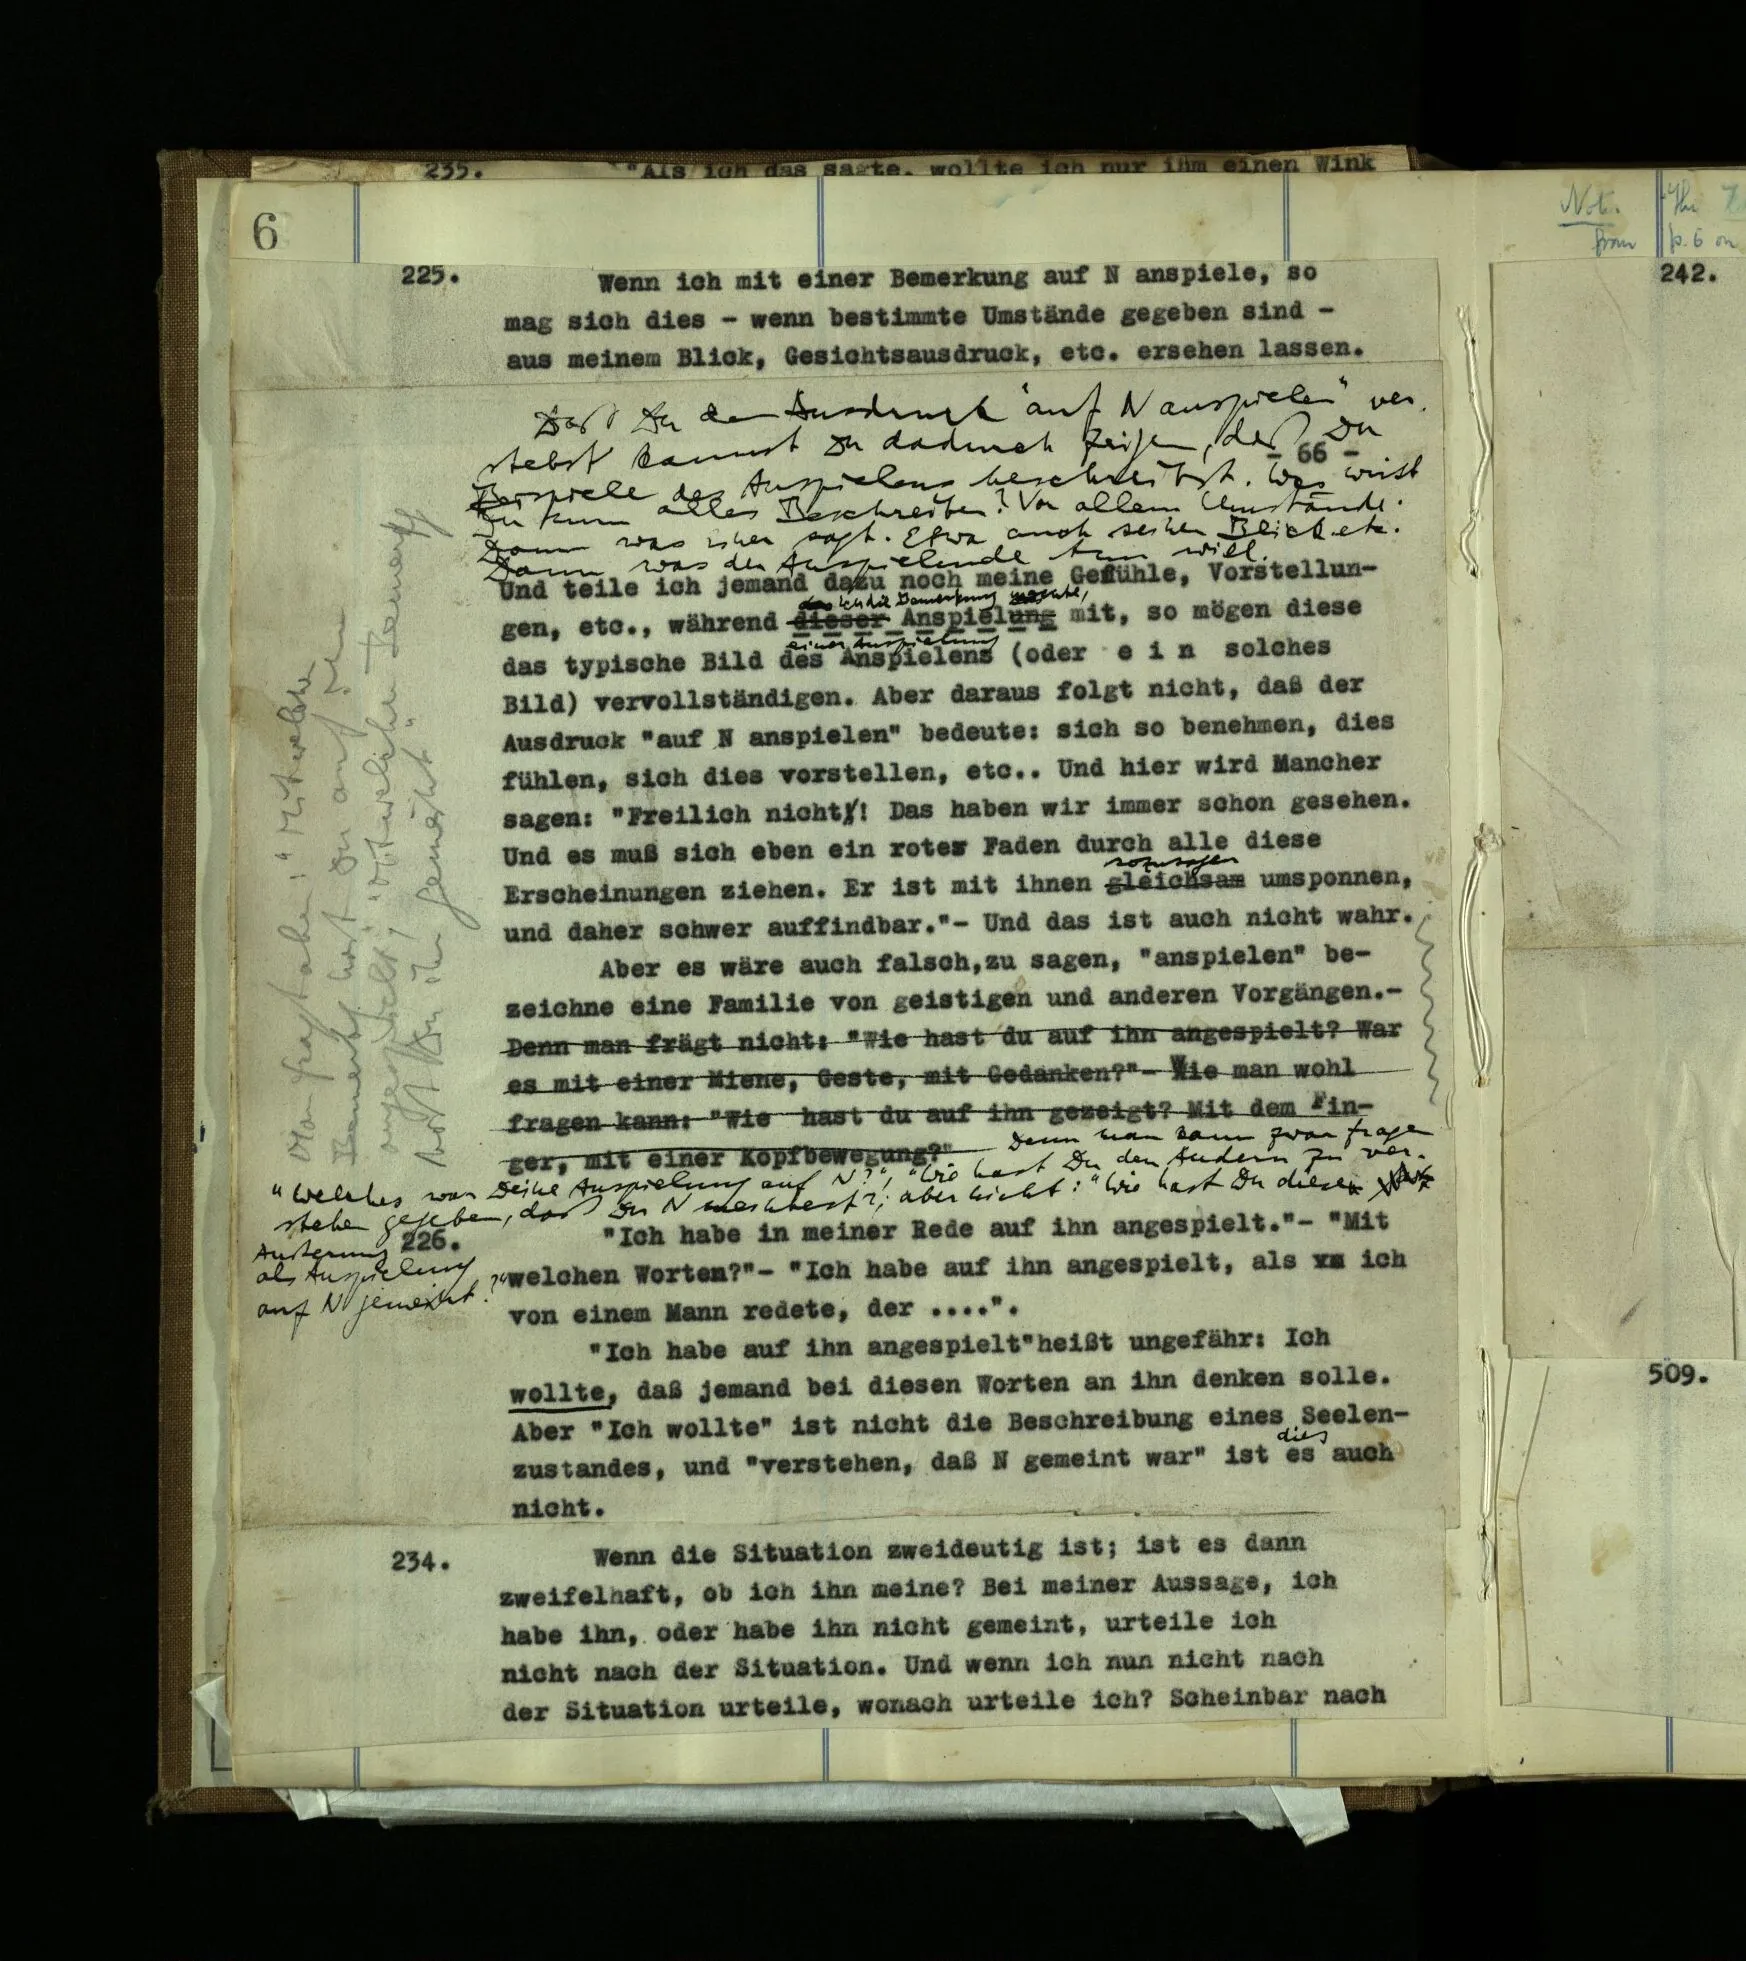 235. "Als ich das sagte, wollte ich nur ihm einen Wink
6
225. Wenn ich mit einer Bemerkung auf N anspiele, so
mag sich dies - wenn bestimmte Umstände gegeben sind -
aus meinem Blick, Gesichtsausdruck, etc. ersehen lassen.
Daß Du den Ausdruck "auf N anspielen" ver-
stehst kannst Du dadurch zeigen, daß Du
- 66 -
Beispiele des Anspielens beschreibst. Was wirst
Du nun alles Beschreiben? Vor allem Umstände.
Dann was einer sagt. Etwa auch seinen Blick etc.
Dann was der Anspielende tun will.
Und teile ich jemand dazu noch meine Gefühle, Vorstellun-
das ich die Bemerkung machte,
gen, etc., während dieser Anspielung mit, so mögen diese
einer Anspielung
das typische Bild des Anspielens (oder e i n solches
Bild) vervollständigen. Aber daraus folgt nicht, daß der
Ausdruck "auf N anspielen" bedeute: sich so benehmen, dies
fühlen, sich dies vorstellen, etc.. Und hier wird Mancher
sagen: "Freilich nicht! Das haben wir immer schon gesehen.
Und es muß sich eben ein roter Faden durch alle diese
sozusagen
Erscheinungen ziehen. Er ist mit ihnen gleichsam umsponnen,
und daher schwer auffindbar."- Und das ist auch nicht wahr.
Aber es wäre auch falsch,zu sagen, "anspielen" be-
zeichne eine Familie von geistigen und anderen Vorgängen.-
Denn man frägt nicht: "Wie hast du auf ihn angespielt? War
es mit einer Miene, Geste, mit Gedanken?"- Wie man wohl
fragen kann: "Wie hast du auf ihn gezeigt? Mit dem Fin-
ger, mit einer Kopfbewegung?"
Denn man kann zwar fragen
"Welches war Deine Anspielung auf N?", "Wie hast Du den Andern zu ver-
stehen gegeben, daß Du N meintest?"; aber nicht: "Wie hast Du diese
Äußerung
als Anspielung
auf N gemeint?"
Man fragt aber: "Mit welcher
Bemerkung hast Du auf ihn
angespielt?"
hast Du ihn gemeint"
226. "Ich habe in meiner Rede auf ihn angespielt."- "Mit
welchen Worten?"- "Ich habe auf ihn angespielt, als ich
von einem Mann redete, der ....".
"Ich habe auf ihn angespielt"heißt ungefähr: Ich
wollte, daß jemand bei diesen Worten an ihn denken solle.
Aber "Ich wollte" ist nicht die Beschreibung eines Seelen-
dies
zustandes, und "verstehen, daß N gemeint war" ist es auch
nicht.
234. Wenn die Situation zweideutig ist; ist es dann
zweifelhaft, ob ich ihn meine? Bei meiner Aussage, ich
habe ihn, oder habe ihn nicht gemeint, urteile ich
nicht nach der Situation. Und wenn ich nun nicht nach
der Situation urteile, wonach urteile ich? Scheinbar nach
from
p. 6 on
242.
509.